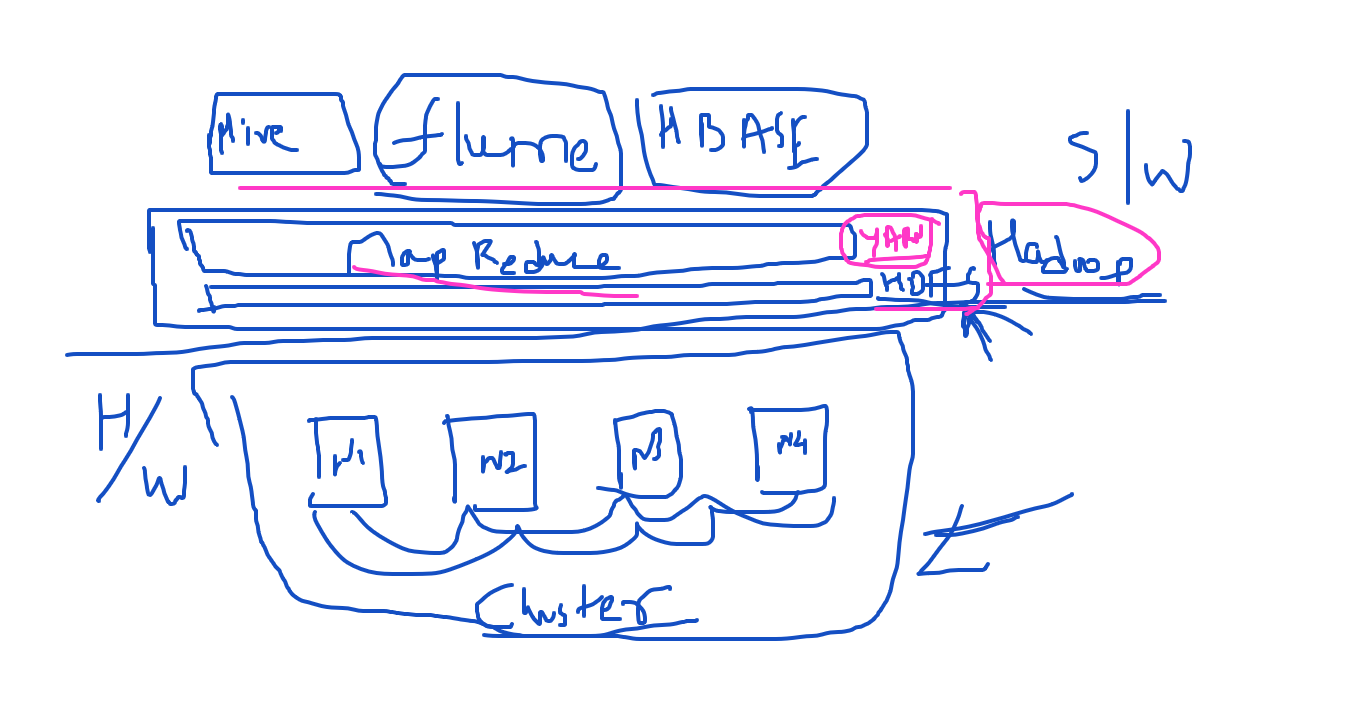 Hive flume HBASE
S/W
Map Reduce YARN Hadoop
HDFS
H/W
N1 N2 N3 N4
Cluster